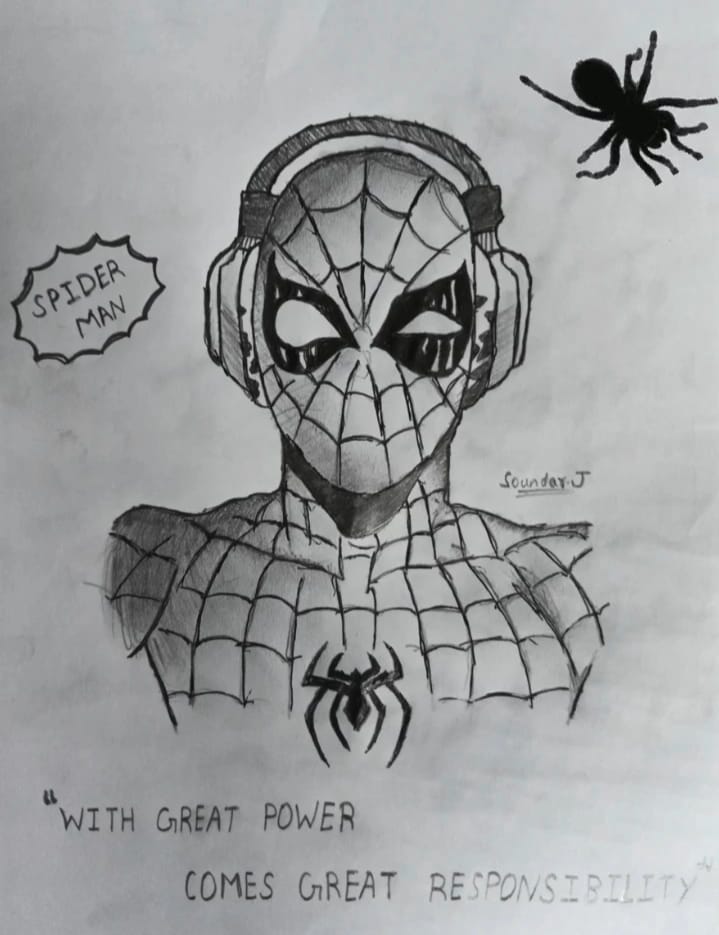 SPIDER
MAN
Soundar.J
"WITH GREAT POWER
COMES GREAT RESPONSIBILITY"